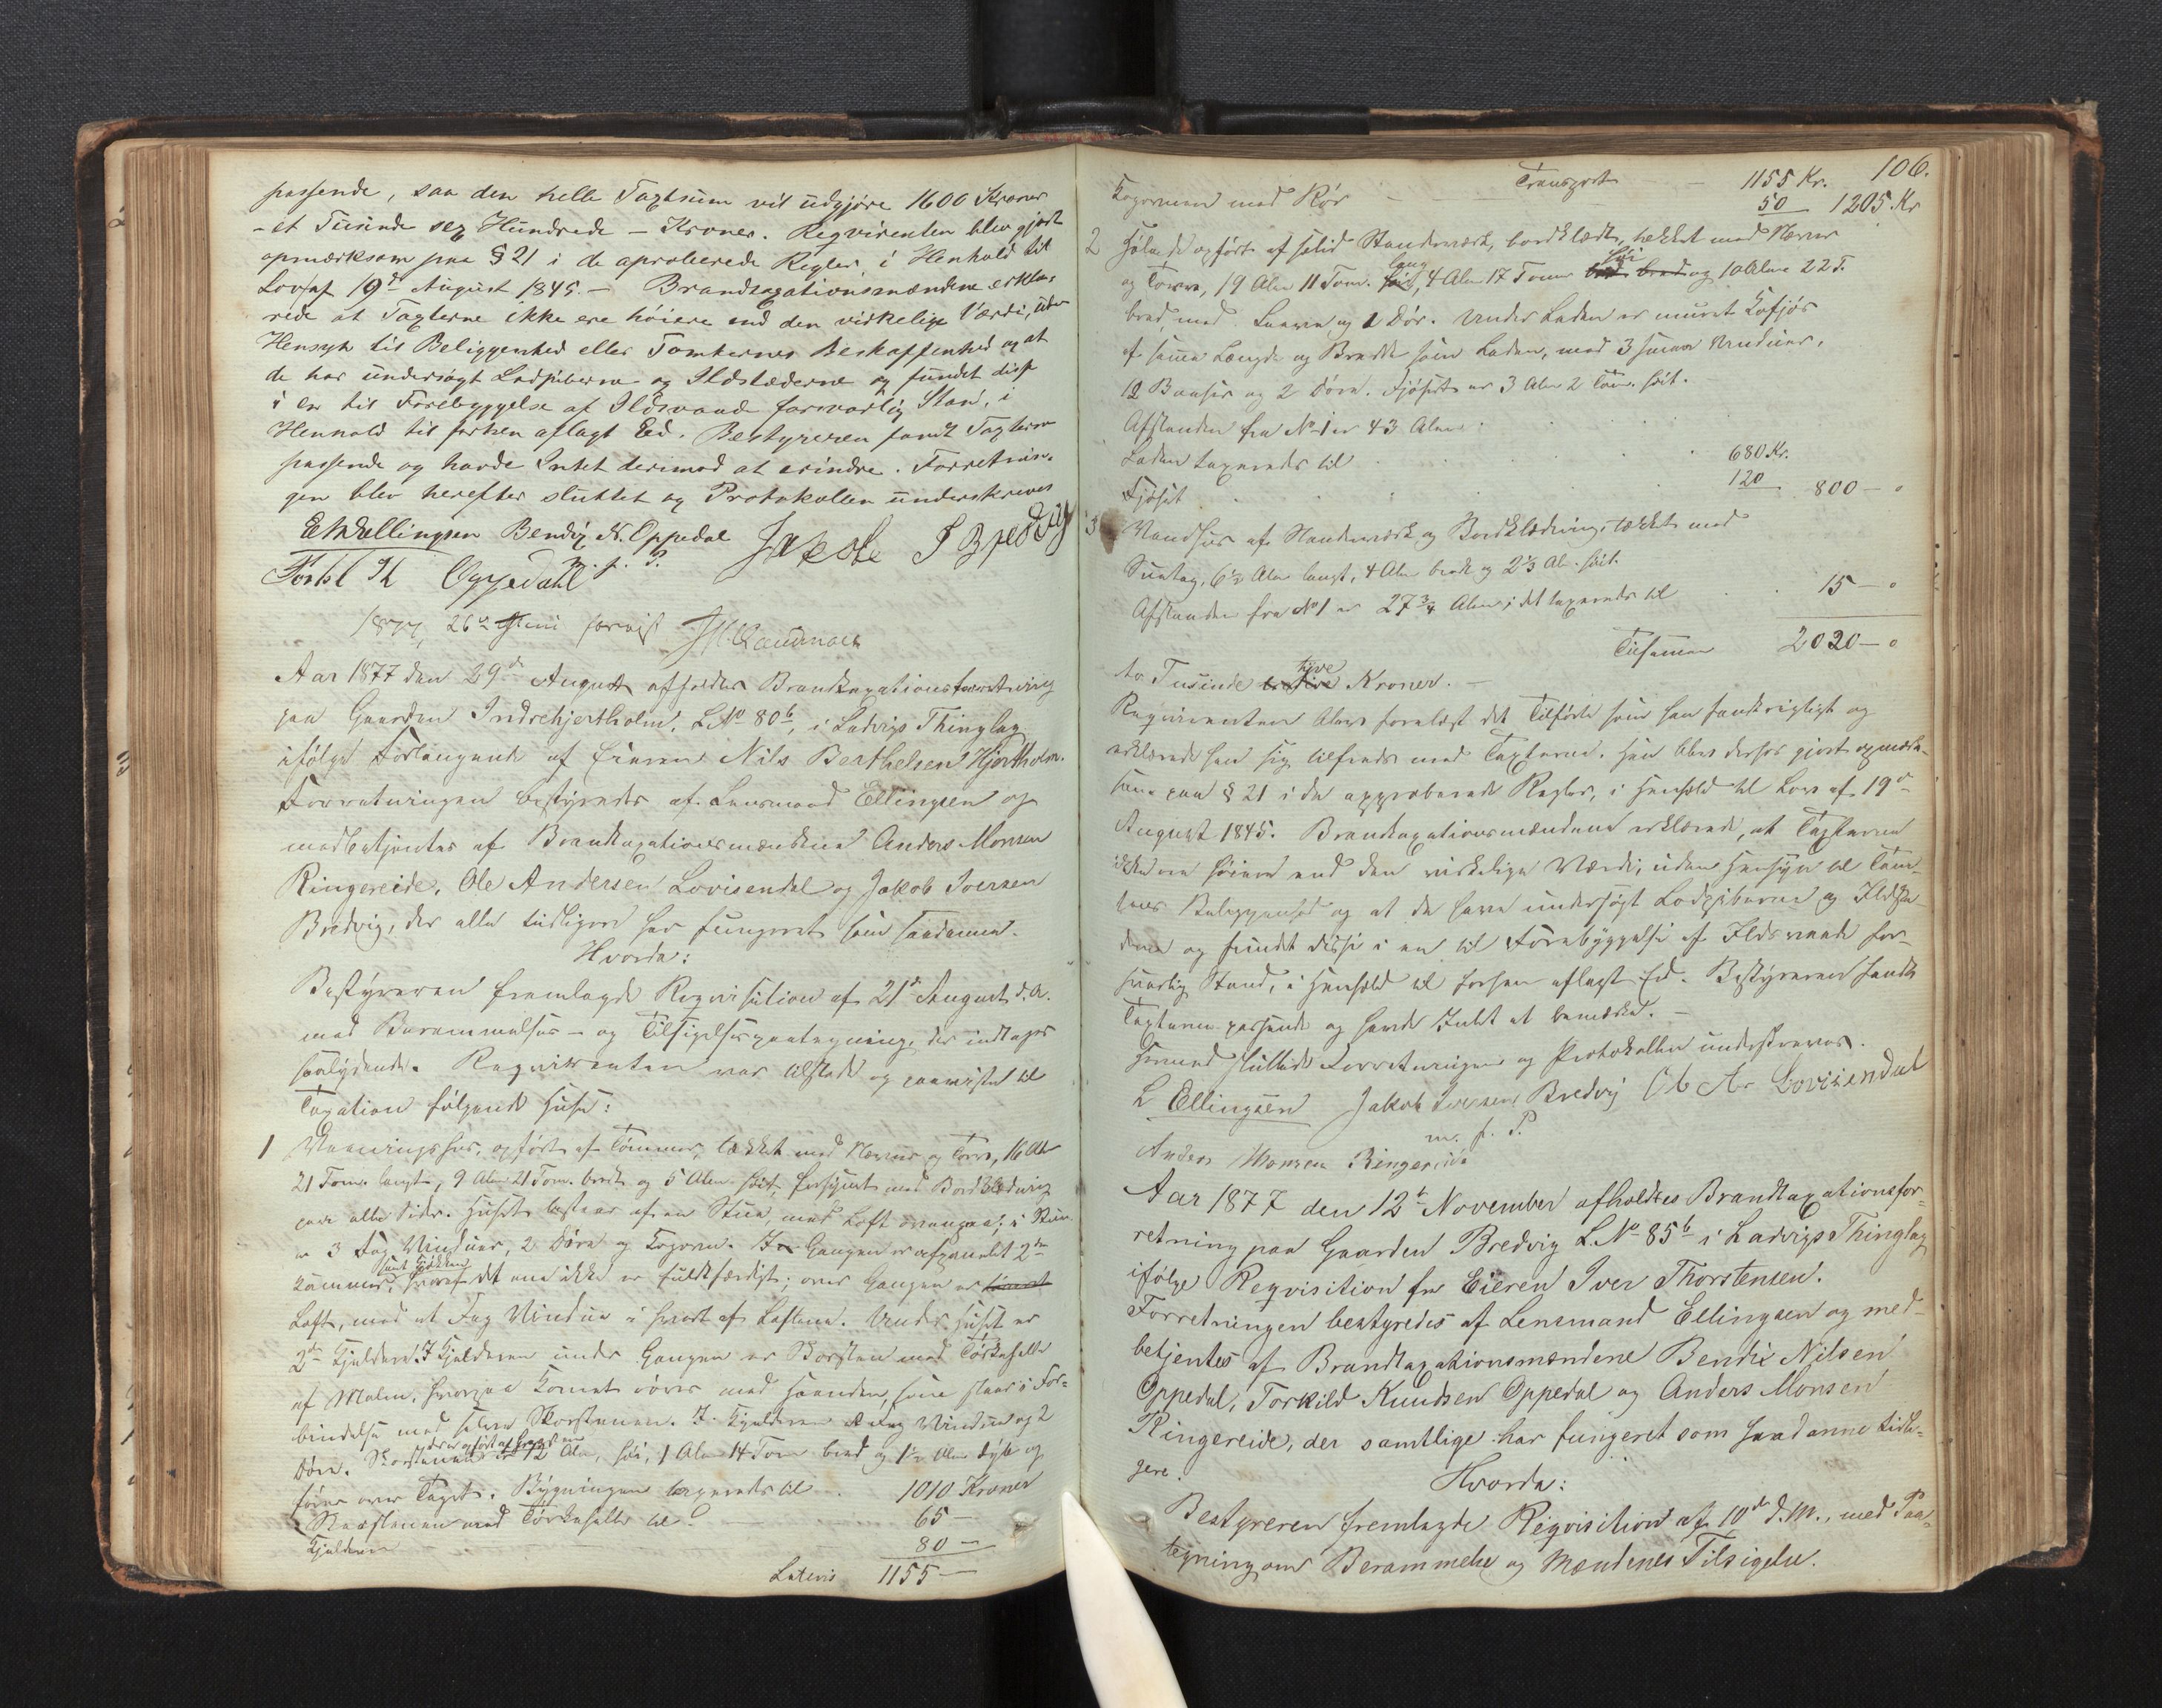 passende, saa den hele Taxtsum vil udgjøre 1600 Kroner
- et Tusinde sex Hundrede - Kroner. Reqvirenten blev gjort
opmærksom paa § 21 i de aproberede Regler, i Henhold til
Lov af 19de August 1845. - Brandtaxationsmændene erklæ-
rede at Taxterne ikke ere høiere end den virkelige Værdi, uden
Hensyn til Beliggenhed eller Tomternes Beskaffenhed og at
de har undersøgt Ladpiberne og Ildstæderne og fundet disse
i en til Forebyggelse af Ildsvaade forsvarlig Stand, i
Henhold til forhen aflagt Ed. Bestyreren fandt Taxterne
passende og havde Intet derimod at erindre. Forretnin-
gen blev herefter sluttet og Protokollen underskreves
Ellingsen Bendix N. Oppedal Jakob I Bredvig
Torkel K Oppedahl m. f. P.
1877, 26de Juni forevist
Aar 1877 den 29de August afholdes Brandtaxationsforretning
paa Gaarden Indrehjertholm, L.No 80b, i Ladvigs Thinglag
ifølge Forlangende af Eieren Nils Berthelsen Hjertholm.
Forretningen bestyredes af Lensmand Ellingsen og
medbetjentes af Brandtaxationsmændene Anders Monsen
Ringereide, Ole Andersen Lovisendal og Jakob Iversen
Bredvig, der alle tidligere har fungeret som saadanne.
Hvorda:
Bestyreren fremlagde Reqvisition af 21de August d. A.
med Berammelses- og Tilsigelsespaategning, der indtages
saalydende. Reqvirenten var tilstede og paaviste til
Taxation følgende Huse:
1 Vaaningshus, opført af Tømmer, tækket med Næver og Torv, 16 Al.
21 Tom. langt, 9 Alen 21 Tom. bredt og 5 Alen høit, forsynet med Bordklædning
paa alle Sider. Huset bestaar af en Stue, med Loft ovenpaa; i Stuen
er 3 Fag Vinduer, 2 Døre og Kogovn. I Gangen er afpanelet 2de
Kammer, samt Kjøkken, hvoraf det ene ikke er fuldtfærdigt; over Gangen er
Loft, med et Fag Vindue i hvert af Loftene. Under Huset er
2de Kjeldere. I Kjelderen under Gangen er Skorsten med Tørkehelle
af Malm, hvorpaa Kornet røres med Haanden, som staar i For-
bindelse med selve Skorstenen. I Kjelderen Fag Vindue og 2
Døre. Skorstenen, der er opført af er 12 Alen høi, 1 Alen 14 Tom bred og 1½ Alen dyb og
føres over Taget. Bygningen taxeredes til 1010 Kroner
Skorstenen med Tørkehelle til 65 -
Kjelderen 80 -
Lateris 1155 -
106.
Transport - 1155 Kr.
Kogovnen med Rør 50 1205. Kr
2 Hølade opført af solid Standerværk, bordklædt, tækket med Næver
og Torv, 19 Alen 11 Tom. lang, 4 Alen 17 Tomer høi og 10 Alen 22 T.
bred, med Laave og 1 Dør. Under Laden er muret Kofjøs
af samme Længde og Bredde som Laden, med 3 smaa Vinduer,
12 Baaser og 2 Døre. Fjøset er 3 Alen 2 Tom. høit.
Afstanden fra No 1 er 43 Alen.
Laden taxeredes til 680 Kr.
Fjøset 120 800 - "
3 Vandhus af Standerværk og Bordklædning, tækket med
Suntag, 6½ Alen langt, 4 Alen bredt og 2⅓ Al. høit.
Afstanden fra No 1 er 27¾ Alen; det taxeredes til 15 - "
Tilsammen 2020 - "
to Tusinde tyve Kroner. -
Reqvirenten blev forelæst det Tilførte som han fandt rigtigt og
erklærede han sig tilfreds med Taxterne. Han blev derhos gjort opmærk-
som paa § 21 i de approberede Regler, i Henhold til Lov af 19de
August 1845. Brandtaxationsmændene erklærede, at Taxterne
ikke ere høiere end den virkelige Værdi, uden Hensyn til Tom-
ternes Beliggenhed og at de have undersøgt Ladpiberne og Ildstæ-
derne og fundet disse i en til Forebyggelse af Ildsvaade for-
svarlig Stand, i Henhold til forhen aflagt Ed. Bestyreren fandt
Taxterne passende og havde Intet at bemærke. -
Hermed sluttedes Forretningen og Protokollen underskreves.
L Ellingsen Jakob Iversen Bredvig Ole An Lovisendal
m. f. P.
Anders Monsen Ringereide
Aar 1877 den 12te November afholdtes Brandtaxationsfor-
retning paa Gaarden Bredvig L. No 85b i Ladvigs Thinglag
ifølge Reqvisition fra Eieren Iver Thorstensen.
Forretningen bestyredes af Lensmand Ellingsen og med-
betjentes af Brandtaxationsmændene Bendix Nilsen
Oppedal, Torkild Knudsen Oppedal og Anders Monsen
Ringereide, der samtlige har fungeret som saadanne tidli-
gere.
Hvorda:
Bestyreren fremlagde Reqvisition af 10de d. M., med Paa-
tegning om Berammelse og Mændenes Tilsigelse.